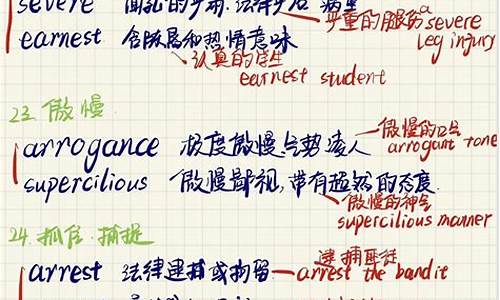 severe
严重的腿伤 a severe leg injury
earnest 含
认真的学生
earnest student
23. 傲慢
arrogance 极度傲慢,气势凌人
傲慢的口气
arrogant tone
supercilious 傲慢鄙视,带有超然的态度.
傲慢的神气
supercilious manner
24. 抓住.捕捉
arrest 法律逮捕或拘留
逮捕匪徒
arrest the bandit